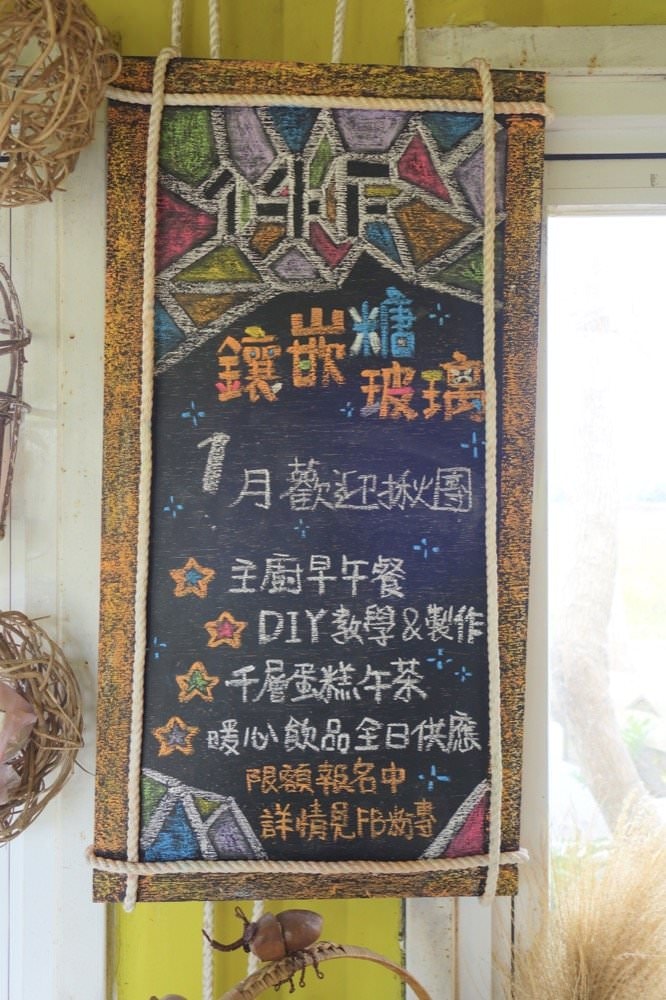 鑲嵌糖
玻璃
1月歡迎揪團
主廚早午餐
DIY教學&製作
千層蛋糕午茶
暖心飲品全日供應
限額報名中
詳情見FB粉專